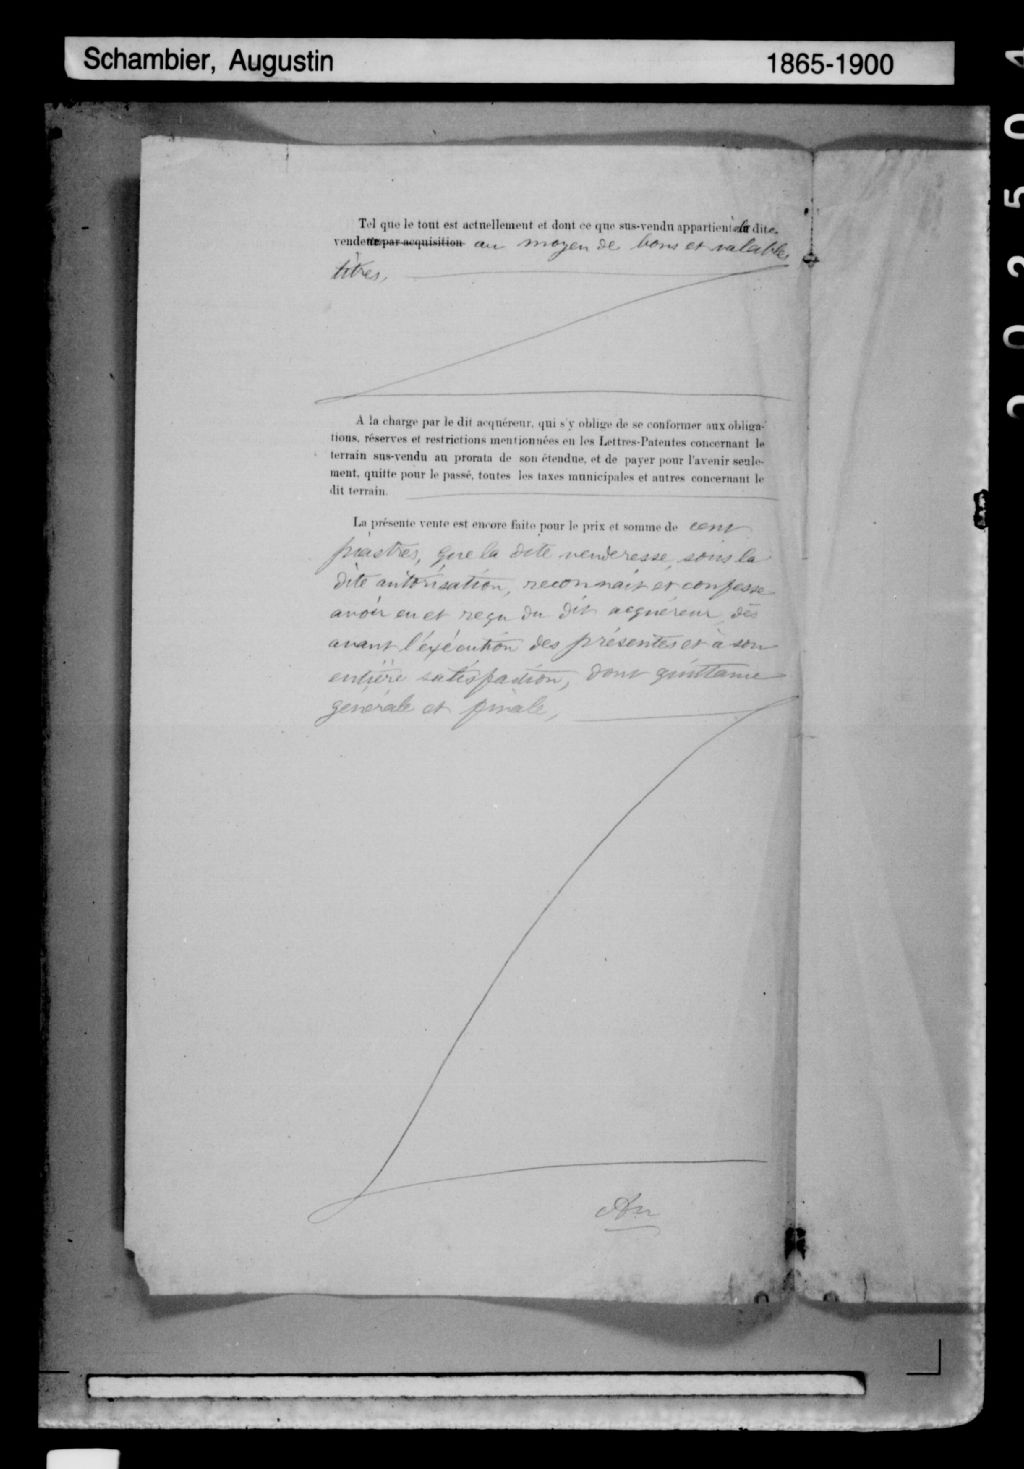 Schambier, Augustin 1865-1900
Tel que le tout est actuellement et dont ce que sus-vendu appartient à la dite
venderesse par acquisition au moyen de bons et valables
titres,
A la charge par le dit acquéreur, qui s'y oblige de se conformer aux obliga-
tions, réserves et restrictions mentionnées en les Lettres-Patentes concernant le
terrain sus-vendu au prorata de son étendue, et de payer pour l'avenir seule-
ment, quitte pour le passé, toutes les taxes municipales et autres concernant le
dit terrain.
La présente vente est encore faite pour le prix et somme de cent
piastres, que la dite venderesse, sous la
dite autorisation, reconnait et confesse
avoir eu et reçu du dit acquéreur dès
avant l'exécution des présentes et à son
entière satisfaction, dont quittance
générale et finale,